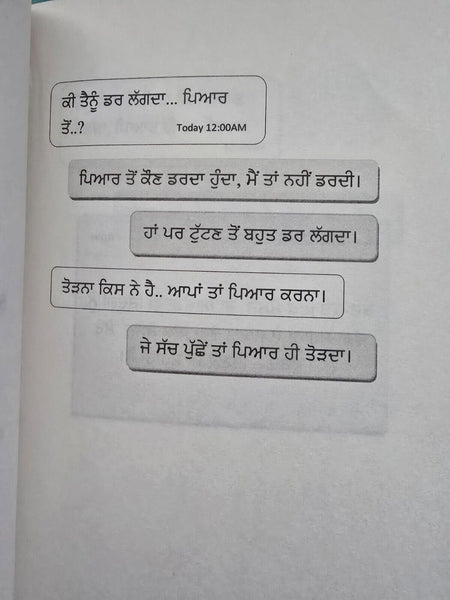 ਕੀ ਤੈਨੂੰ ਡਰ ਲੱਗਦਾ... ਪਿਆਰ
ਤੋਂ..?
Today 12:00AM
ਪਿਆਰ ਤੋਂ ਕੌਣ ਡਰਦਾ ਹੁੰਦਾ, ਮੈਂ ਤਾਂ ਨਹੀਂ ਡਰਦੀ।
ਹਾਂ ਪਰ ਟੁੱਟਣ ਤੋਂ ਬਹੁਤ ਡਰ ਲੱਗਦਾ।
ਤੋੜਨਾ ਕਿਸ ਨੇ ਹੈ.. ਆਪਾਂ ਤਾਂ ਪਿਆਰ ਕਰਨਾ।
ਜੇ ਸੱਚ ਪੁੱਛੇਂ ਤਾਂ ਪਿਆਰ ਹੀ ਤੋੜਦਾ।